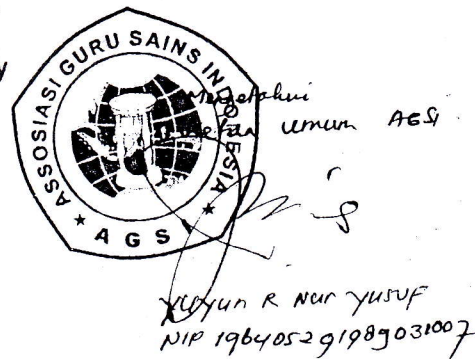 ASSOSIASI GURU SAINS INDONESIA
★ AGS ★
Mengetahui
umum AGSI
Yuyun R Nur Yusuf
NIP 196405291989031007